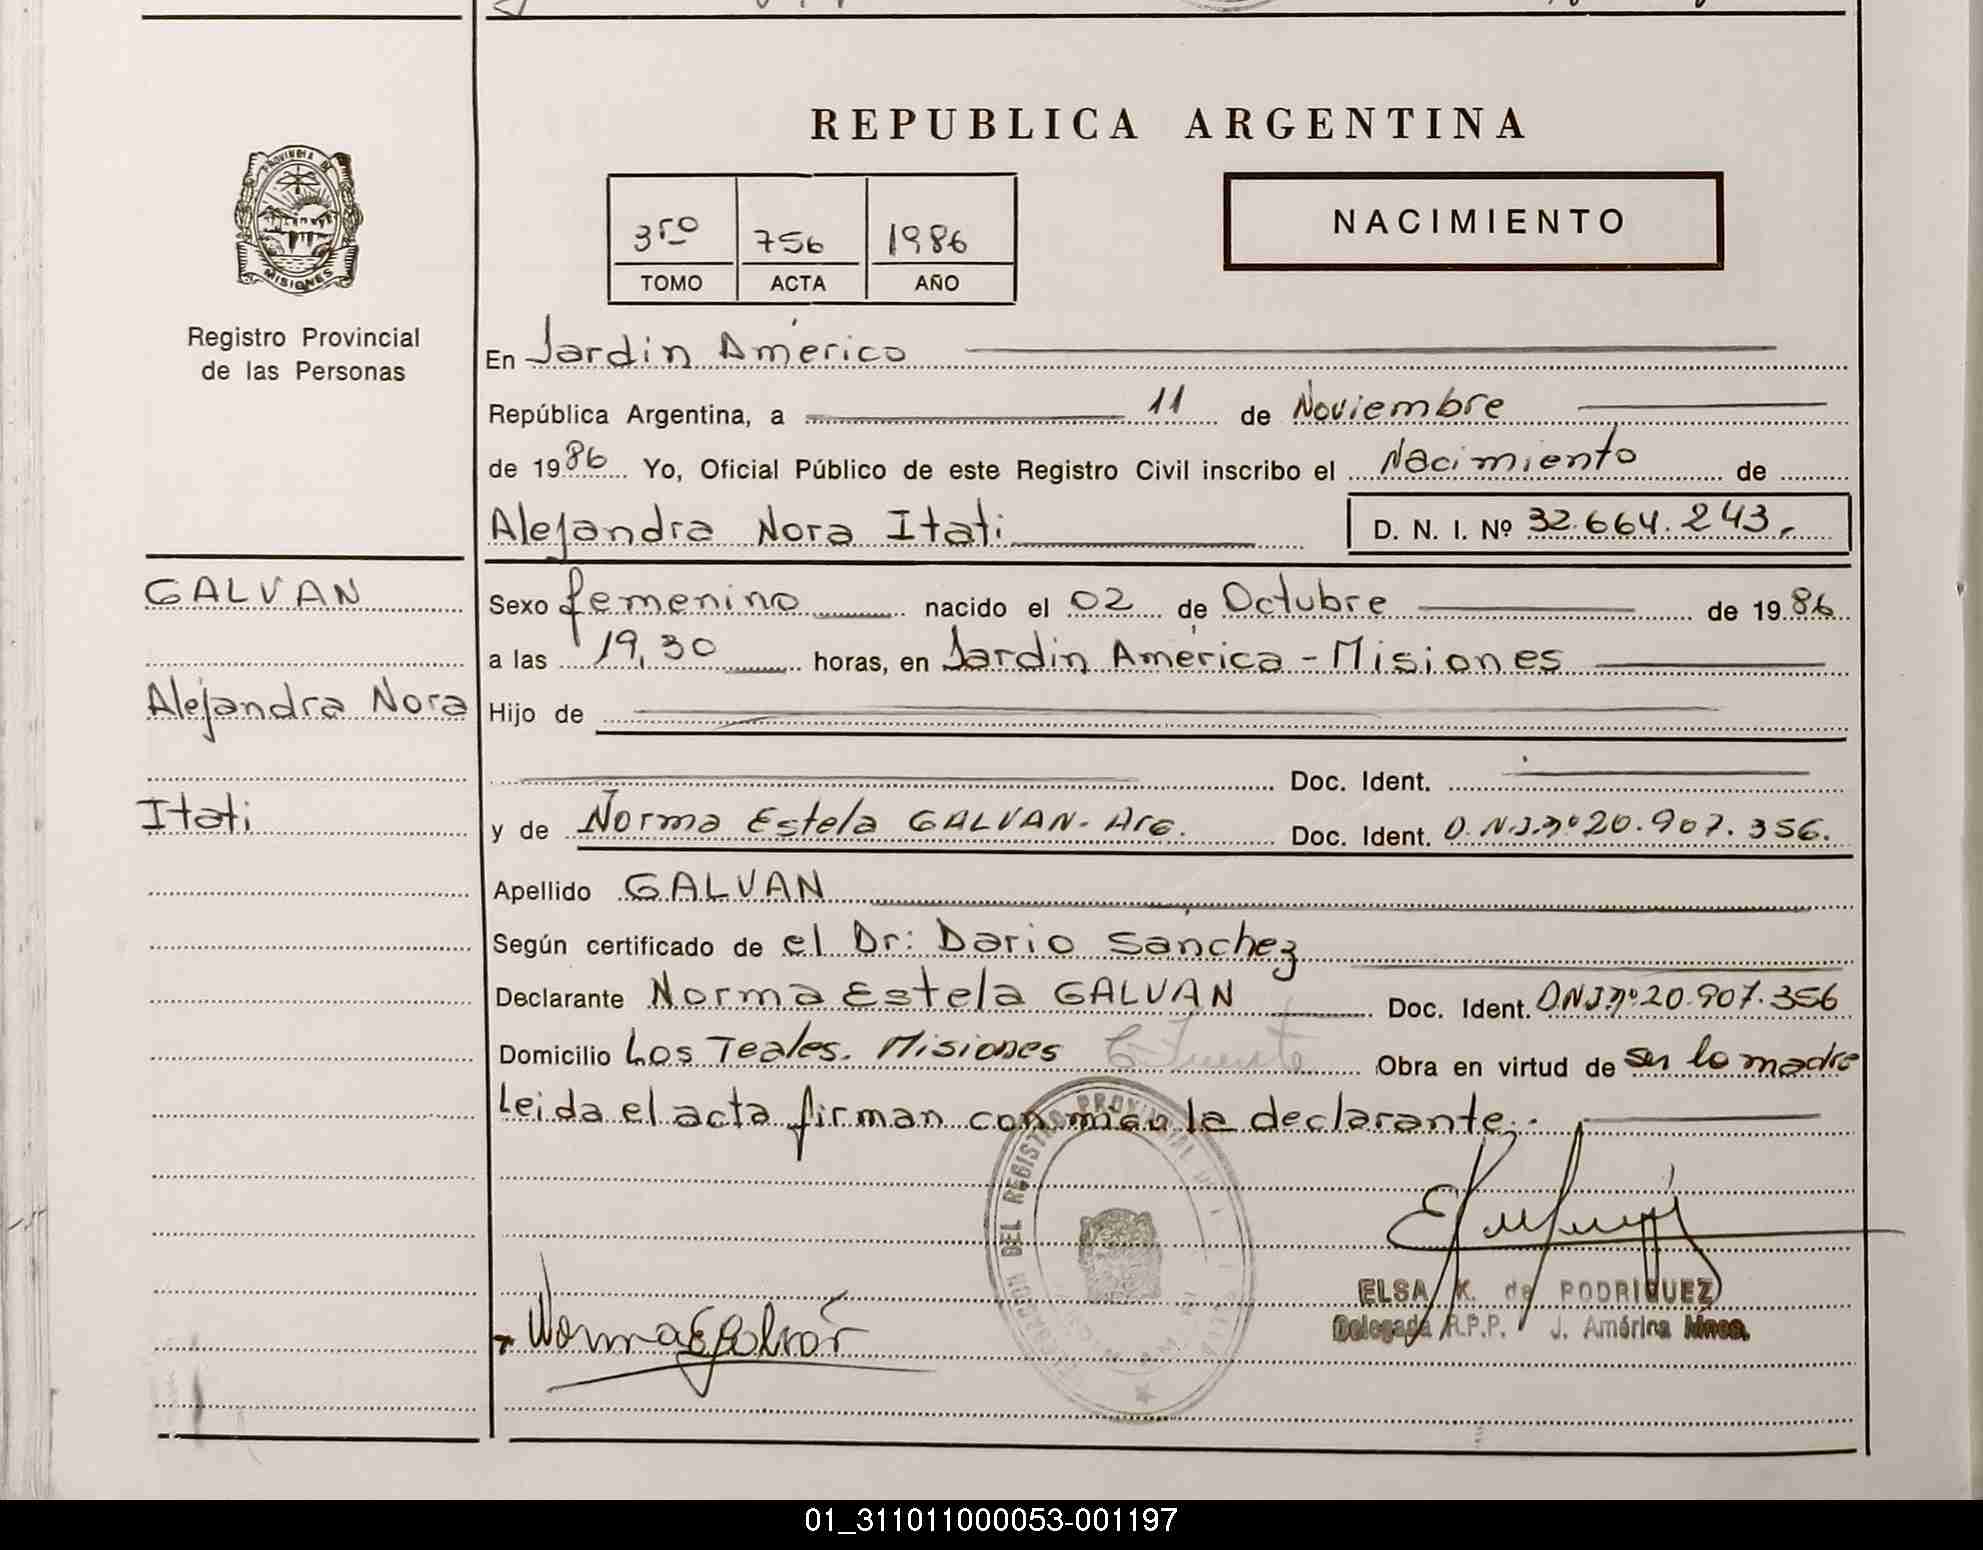 REPUBLICA ARGENTINA
PROVINCIA DE
MISIONES
Registro Provincial
de las Personas
3ro 756 1986
TOMO ACTA AÑO
NACIMIENTO
En Jardín América
República Argentina, a 11 de Noviembre
de 1986 Yo, Oficial Público de este Registro Civil inscribo el Nacimiento de
Alejandra Nora Itati D. N. I. Nº 32.664.243.
GALVAN
Alejandra Nora
Itati
Sexo femenino nacido el 02 de Octubre de 1986
a las 19,30 horas, en Jardín América - Misiones
Hijo de
Doc. Ident.
y de Norma Estela GALVAN- Arg. Doc. Ident. D.N.I.nº20.907.356.
Apellido GALVAN
Según certificado de el Dr: Dario Sánchez
Declarante Norma Estela GALVAN Doc. Ident. DNI.nº20.907.356
Domicilio Los Teales. Misiones Obra en virtud de ser la madre
Leida el acta firman conmigo la declarante.-
DEL REGISTRO PROVINCIAL DE L
Norma E Galván
ELSA K. de RODRIGUEZ
Delegada R.P.P. J. América Mnes.
01_311011000053-001197